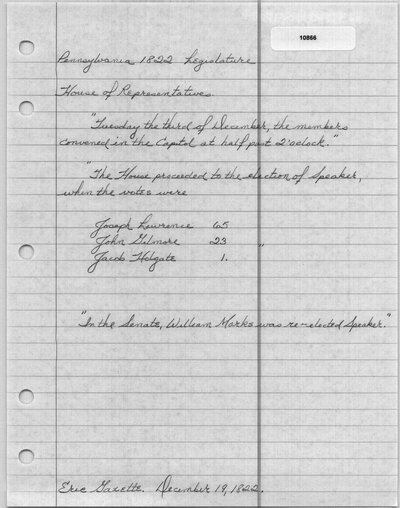 10866
Pennsylvania 1822 Legislature
House of Representatives.
"Tuesday the third of December, the members
convened in the Capitol at half past 2 o'clock."
"The House proceeded to the election of Speaker,
when the votes were
Joseph Lawrence 65
John Gilmore 23 "
Jacob Holgate 1.
"In the Senate, William Marks was re-elected Speaker."
Erie Gazette. December 19, 1822.